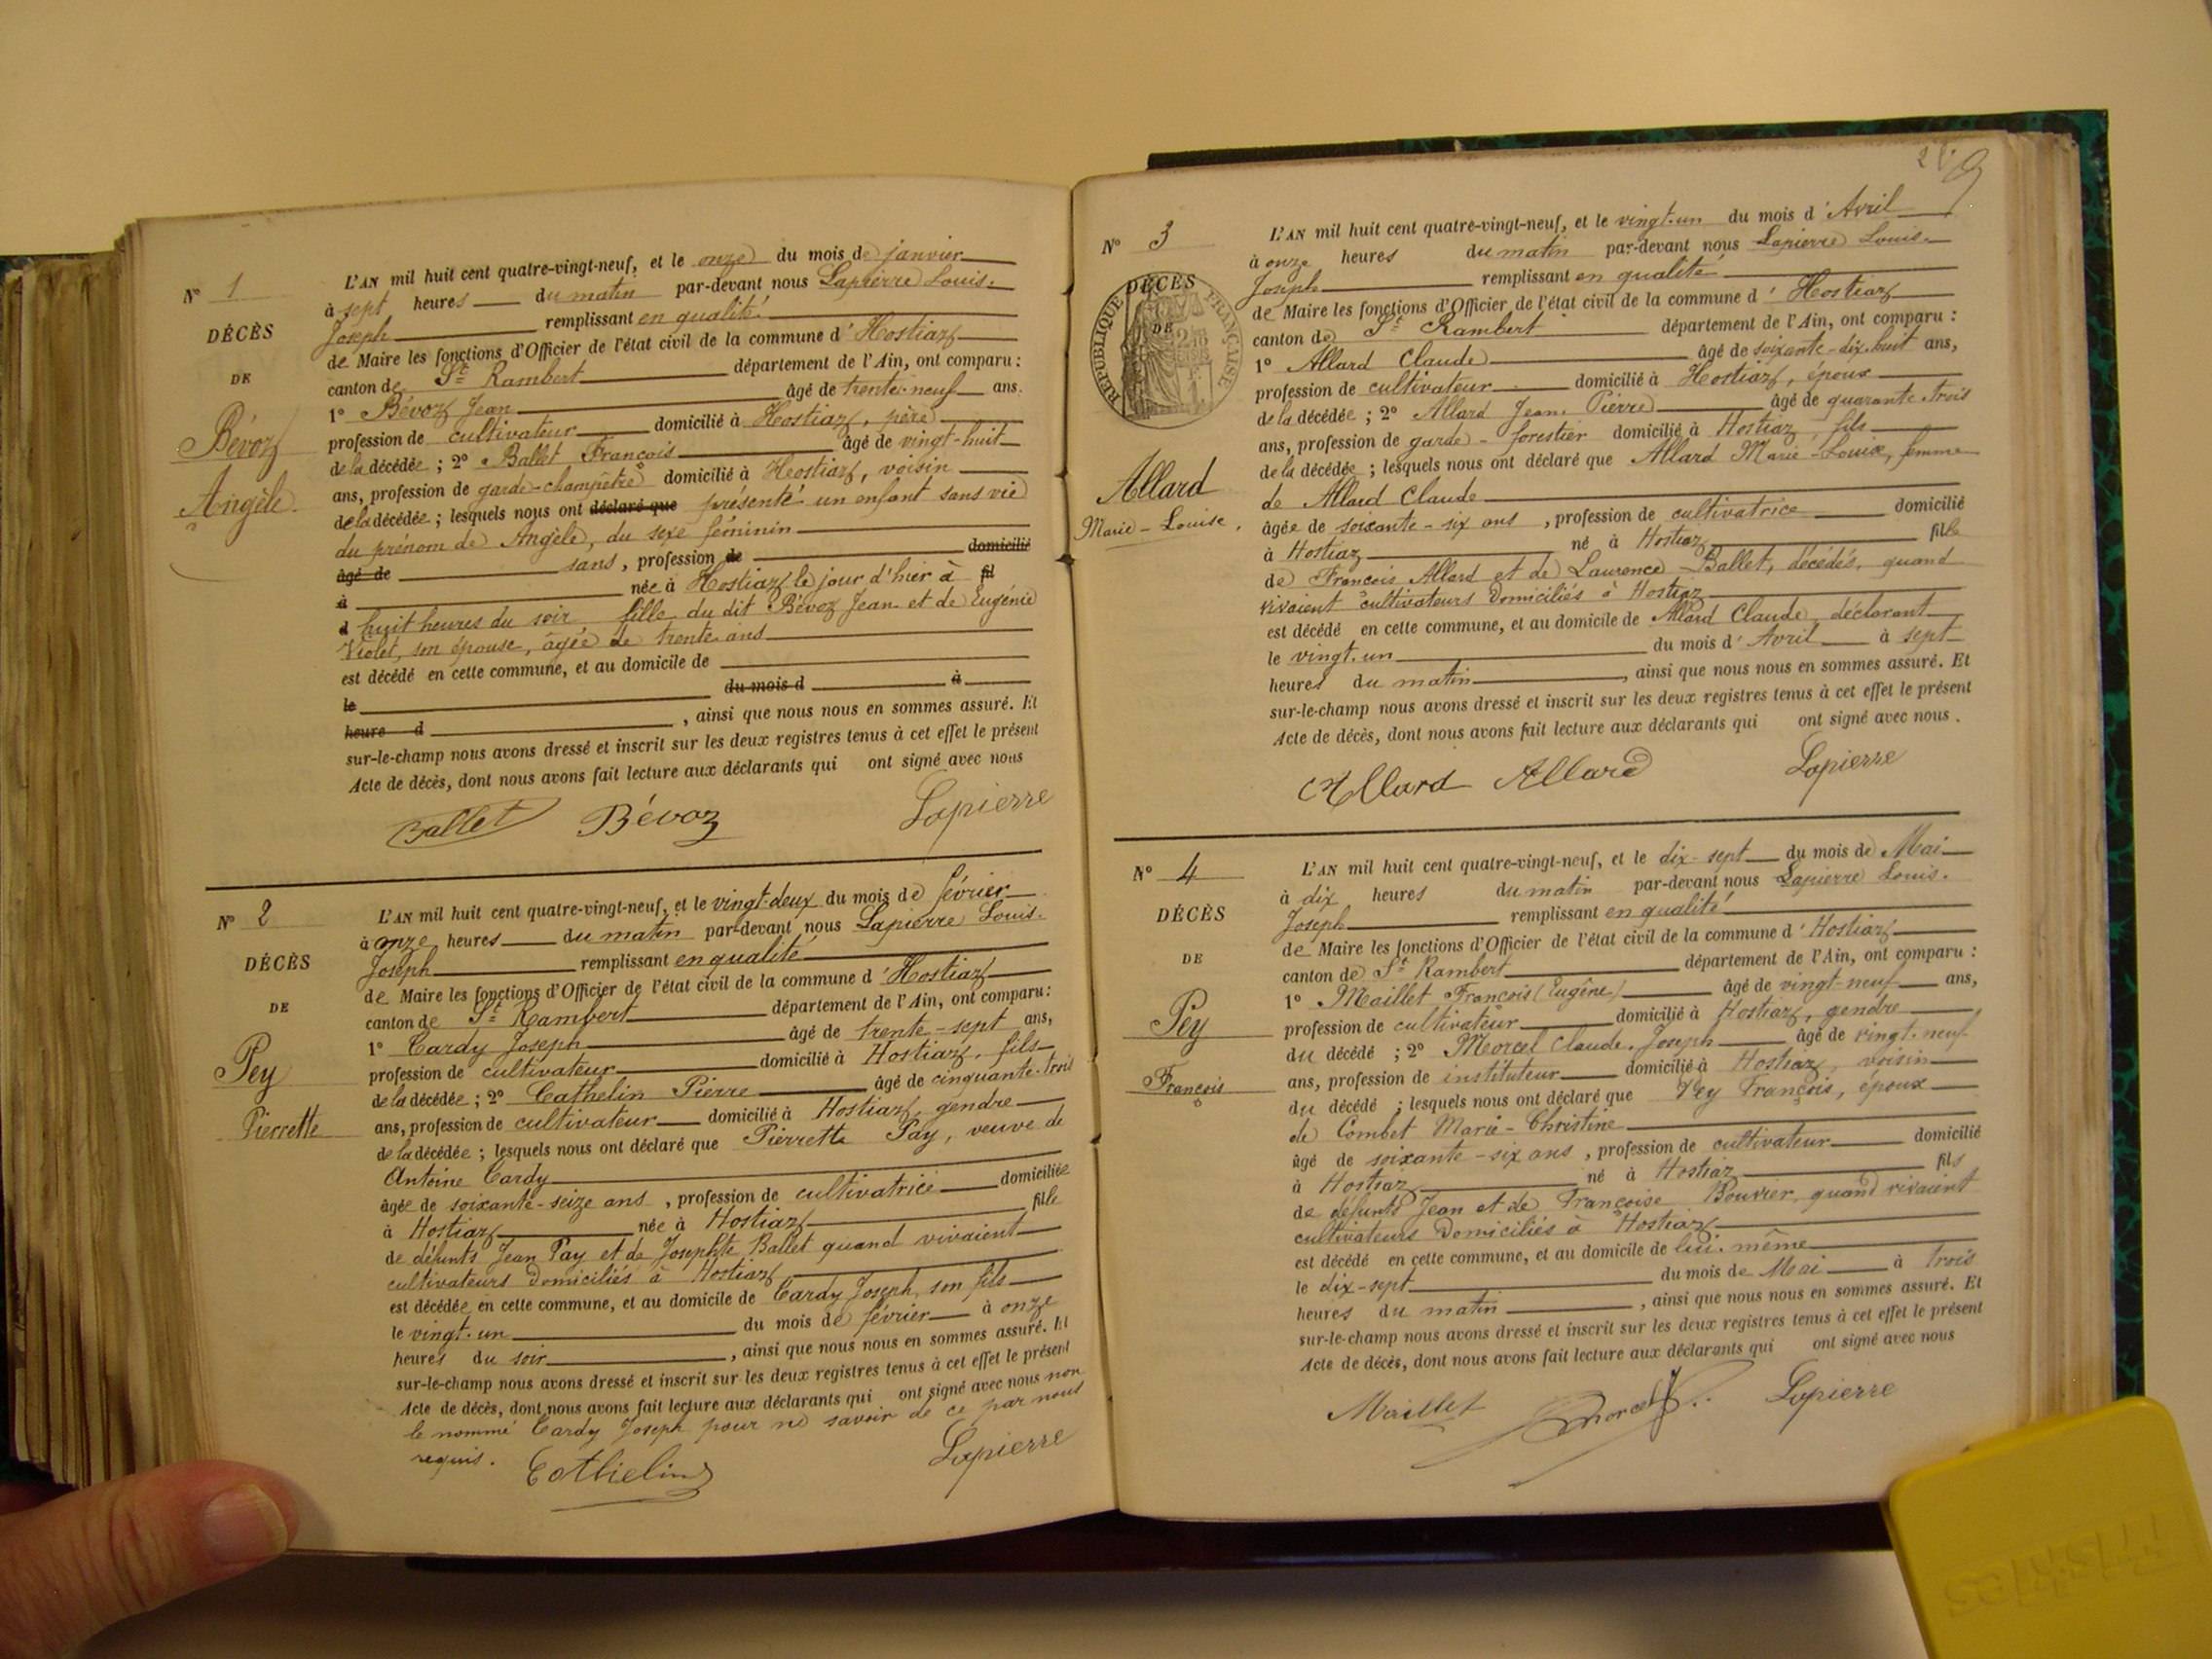 N° 1
DÉCÈS
DE
Bévoz
Angèle.
L'AN mil huit cent quatre-vingt-neuf, et le onze du mois de janvier
à sept heures du matin par-devant nous Lapierre Louis-
Joseph remplissant en qualité
de Maire les fonctions d'Officier de l'état civil de la commune d'Hostiaz
canton de St Rambert département de l'Ain, ont comparu :
1° Bévoz Jean âgé de trente-neuf ans.
profession de cultivateur domicilié à Hostiaz, père
de la décédée ; 2° Ballet François âgé de vingt-huit
ans, profession de garde-champêtre domicilié à Hostiaz, voisin
de la décédée ; lesquels nous ont déclaré que présenté un enfant sans vie
du prénom de Angèle, du sexe féminin
âgé de sans, profession de domicilié
à née à Hostiaz le jour d'hier à fil
d huit heures du soir fille du dit Bévoz Jean et de Eugénie
Violet, son épouse, âgée de trente ans
est décédé en cette commune, et au domicile de
le du mois d à
heure d , ainsi que nous nous en sommes assuré. Et
sur-le-champ nous avons dressé et inscrit sur les deux registres tenus à cet effet le présent
Acte de décès, dont nous avons fait lecture aux déclarants qui ont signé avec nous
Ballet Bévoz Lapierre
N° 2
DÉCÈS
DE
Pey
Pierrette
L'AN mil huit cent quatre-vingt-neuf, et le vingt-deux du mois de février
à onze heures du matin par-devant nous Lapierre Louis-
Joseph remplissant en qualité
de Maire les fonctions d'Officier de l'état civil de la commune d'Hostiaz
canton de St Rambert département de l'Ain, ont comparu :
1° Cardy Joseph âgé de trente-sept ans,
profession de cultivateur domicilié à Hostiaz, fils
de la décédée ; 2° Cathelin Pierre âgé de cinquante-trois
ans, profession de cultivateur domicilié à Hostiaz, gendre
de la décédée ; lesquels nous ont déclaré que Pierrette Pay, veuve de
Antoine Cardy
âgée de soixante-seize ans , profession de cultivatrice domiciliée
à Hostiaz née à Hostiaz fille
de défunts Jean Pay et de Josephte Ballet quand vivaient
cultivateurs domiciliés à Hostiaz
est décédée en cette commune, et au domicile de Cardy Joseph, son fils
le vingt-un du mois de février à onze
heures du soir , ainsi que nous nous en sommes assuré. Et
sur-le-champ nous avons dressé et inscrit sur les deux registres tenus à cet effet le présent
Acte de décès, dont nous avons fait lecture aux déclarants qui ont signé avec nous non
le nommé Cardy Joseph pour ne savoir de ce par nous
requis.
Cathelin Lapierre
9
N° 3
DÉCÈS
DE
RÉPUBLIQUE FRANÇAISE
Allard
Marie-Louise.
L'AN mil huit cent quatre-vingt-neuf, et le vingt-un du mois d'Avril
à onze heures du matin par-devant nous Lapierre Louis-
Joseph remplissant en qualité
de Maire les fonctions d'Officier de l'état civil de la commune d'Hostiaz
canton de St Rambert département de l'Ain, ont comparu :
1° Allard Claude âgé de soixante-dix-huit ans,
profession de cultivateur domicilié à Hostiaz, époux
de la décédée ; 2° Allard Jean-Pierre âgé de quarante-trois
ans, profession de garde-forestier domicilié à Hostiaz fils
de la décédée ; lesquels nous ont déclaré que Allard Marie-Louise, femme
de Allard Claude
âgée de soixante-six ans , profession de cultivatrice domicilié
à Hostiaz né à Hostiaz fille
de François Allard et de Laurence Ballet, décédés, quand
vivaient cultivateurs domiciliés à Hostiaz
est décédé en cette commune, et au domicile de Allard Claude, déclarant
le vingt-un du mois d'Avril à sept
heures du matin , ainsi que nous nous en sommes assuré. Et
sur-le-champ nous avons dressé et inscrit sur les deux registres tenus à cet effet le présent
Acte de décès, dont nous avons fait lecture aux déclarants qui ont signé avec nous.
Allard Allard Lapierre
N° 4
DÉCÈS
DE
Pey
François
L'AN mil huit cent quatre-vingt-neuf, et le dix-sept du mois de Mai
à dix heures du matin par-devant nous Lapierre Louis-
Joseph remplissant en qualité
de Maire les fonctions d'Officier de l'état civil de la commune d'Hostiaz
canton de St Rambert département de l'Ain, ont comparu :
1° Maillet François (Eugène) âgé de vingt-neuf ans,
profession de cultivateur domicilié à Hostiaz, gendre
du décédé ; 2° Morcel Claude-Joseph âgé de vingt-neuf
ans, profession de instituteur domicilié à Hostiaz, voisin
du décédé ; lesquels nous ont déclaré que Pey François, époux
de Combet Marie-Christine
âgé de soixante-six ans , profession de cultivateur domicilié
à Hostiaz né à Hostiaz fils
de défunts Jean et de Françoise Bouvier, quand vivaient
cultivateurs domiciliés à Hostiaz
est décédé en cette commune, et au domicile de lui-même
le dix-sept du mois de Mai à trois
heures du matin , ainsi que nous nous en sommes assuré. Et
sur-le-champ nous avons dressé et inscrit sur les deux registres tenus à cet effet le présent
Acte de décès, dont nous avons fait lecture aux déclarants qui ont signé avec nous
Maillet Morcel Lapierre